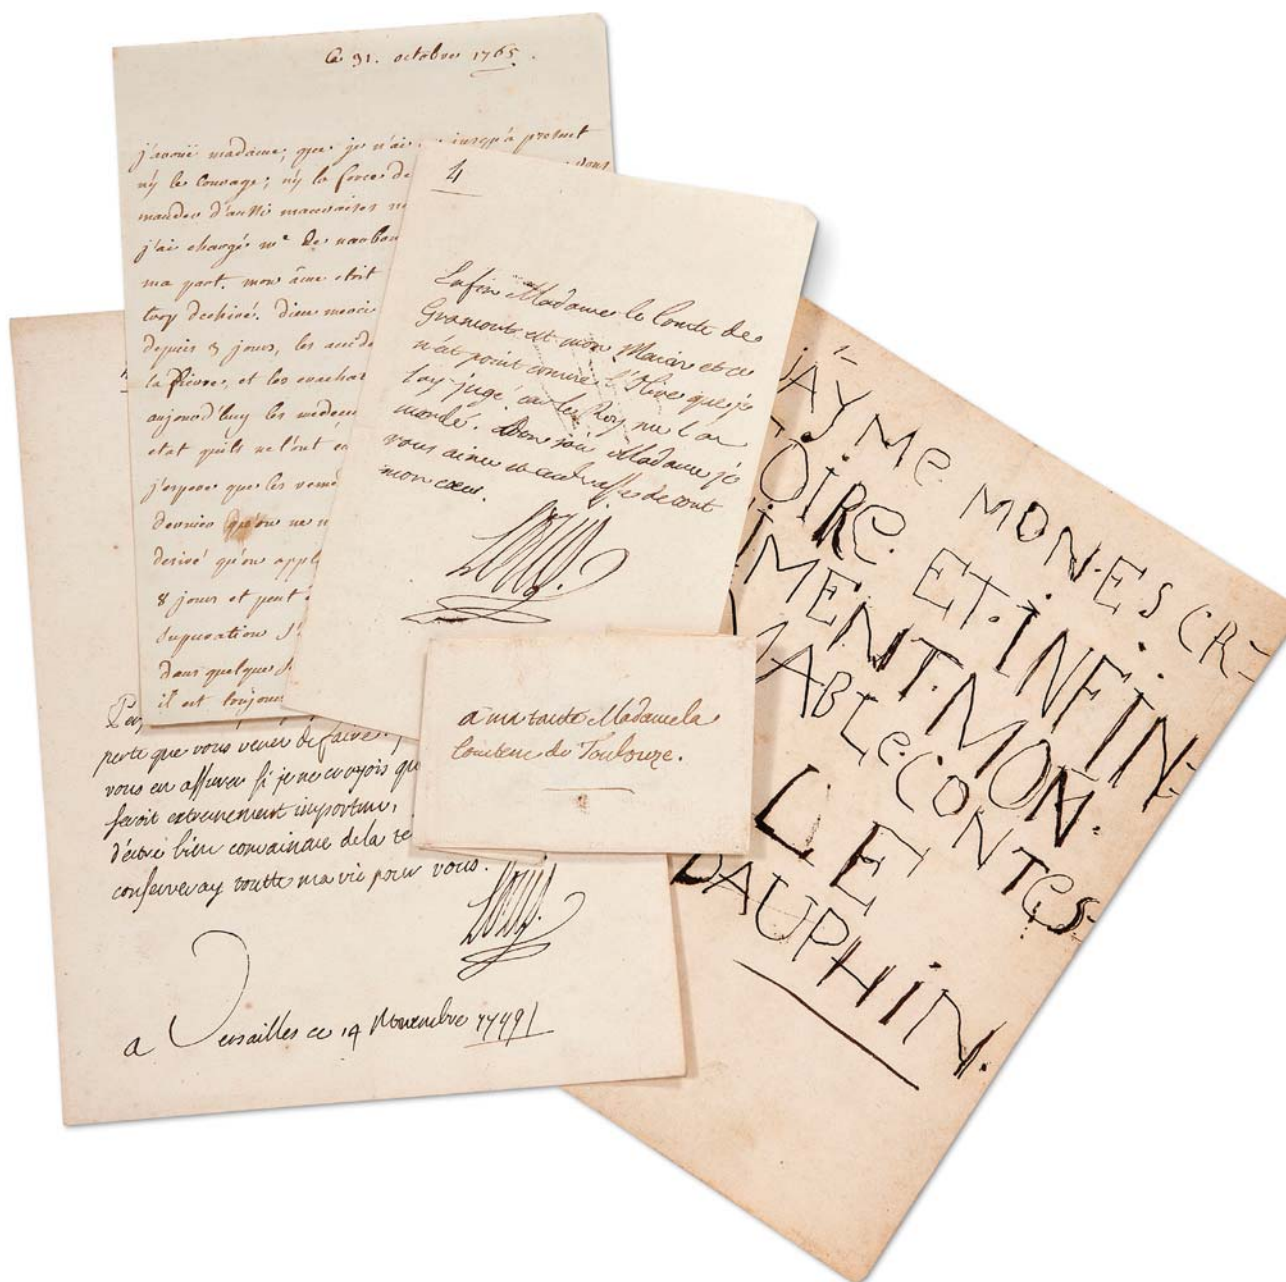 Ce 31. octobre 1765.
j'avoüe madame, que je n'ai jusqu'à present
n'y le Courage; n'y la force de vous
mander d'aussi mauvaises
j'ai chargé mr de
ma part. mon âme etoit
trop dechiré. dieu merci
depuis 3 jours, les
la fievre, et les
aujourd'huy les
etat qu'ils ne l'ont
j'espere que les
dernier qu'on ne
desiré qu'on
8 jours et peut
supuration
dans quelque
il est toujours
4
Enfin Madame le Comte de
Gramont est mon et ce
n'est point comme que je
l'ay jugé car le Roy me l'a
mandé. Bon soir Madame je
vous aime et embrasse de tout
mon cœur.
Louis.
a ma tante Madame la
Comtesse de Toulouze.
perte que vous venés de faire.
vous en assurer si je ne croyois
seroit extremement importun,
d'estre bien convaincue de la
conserveray toutte ma vie pour vous.
Louis.
a Versailles ce 14 Novembre
1-
JAYME MON.ESCR-
TOIRE. ET.INFIN-
IMENT.MON.
MABLE.CONTES-
LE
DAUPHIN.